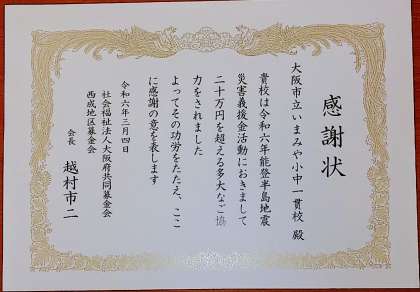 感謝状
大阪市立いまみや小中一貫校 殿
貴校は令和六年能登半島地震
災害義援金活動におきまして
二十万円を超える多大なご協
力をされました
よってその功労をたたえ、ここ
に感謝の意を表します
令和六年三月四日
社会福祉法人大阪府共同募金会
西成地区募金会
会長 越村市二